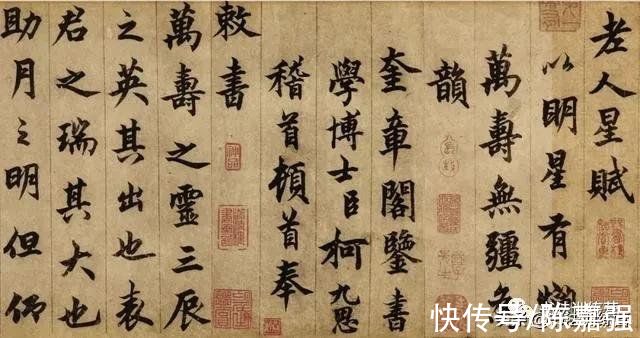 老人星賦
以明星有爛
萬壽無疆為
韻
奎章閣鑒書
學博士臣柯九思
稽首頓首奉
敕書
萬壽之靈三辰
之英其出也表
君之瑞其大也
助月之明但仰
快传号/陈嘉强